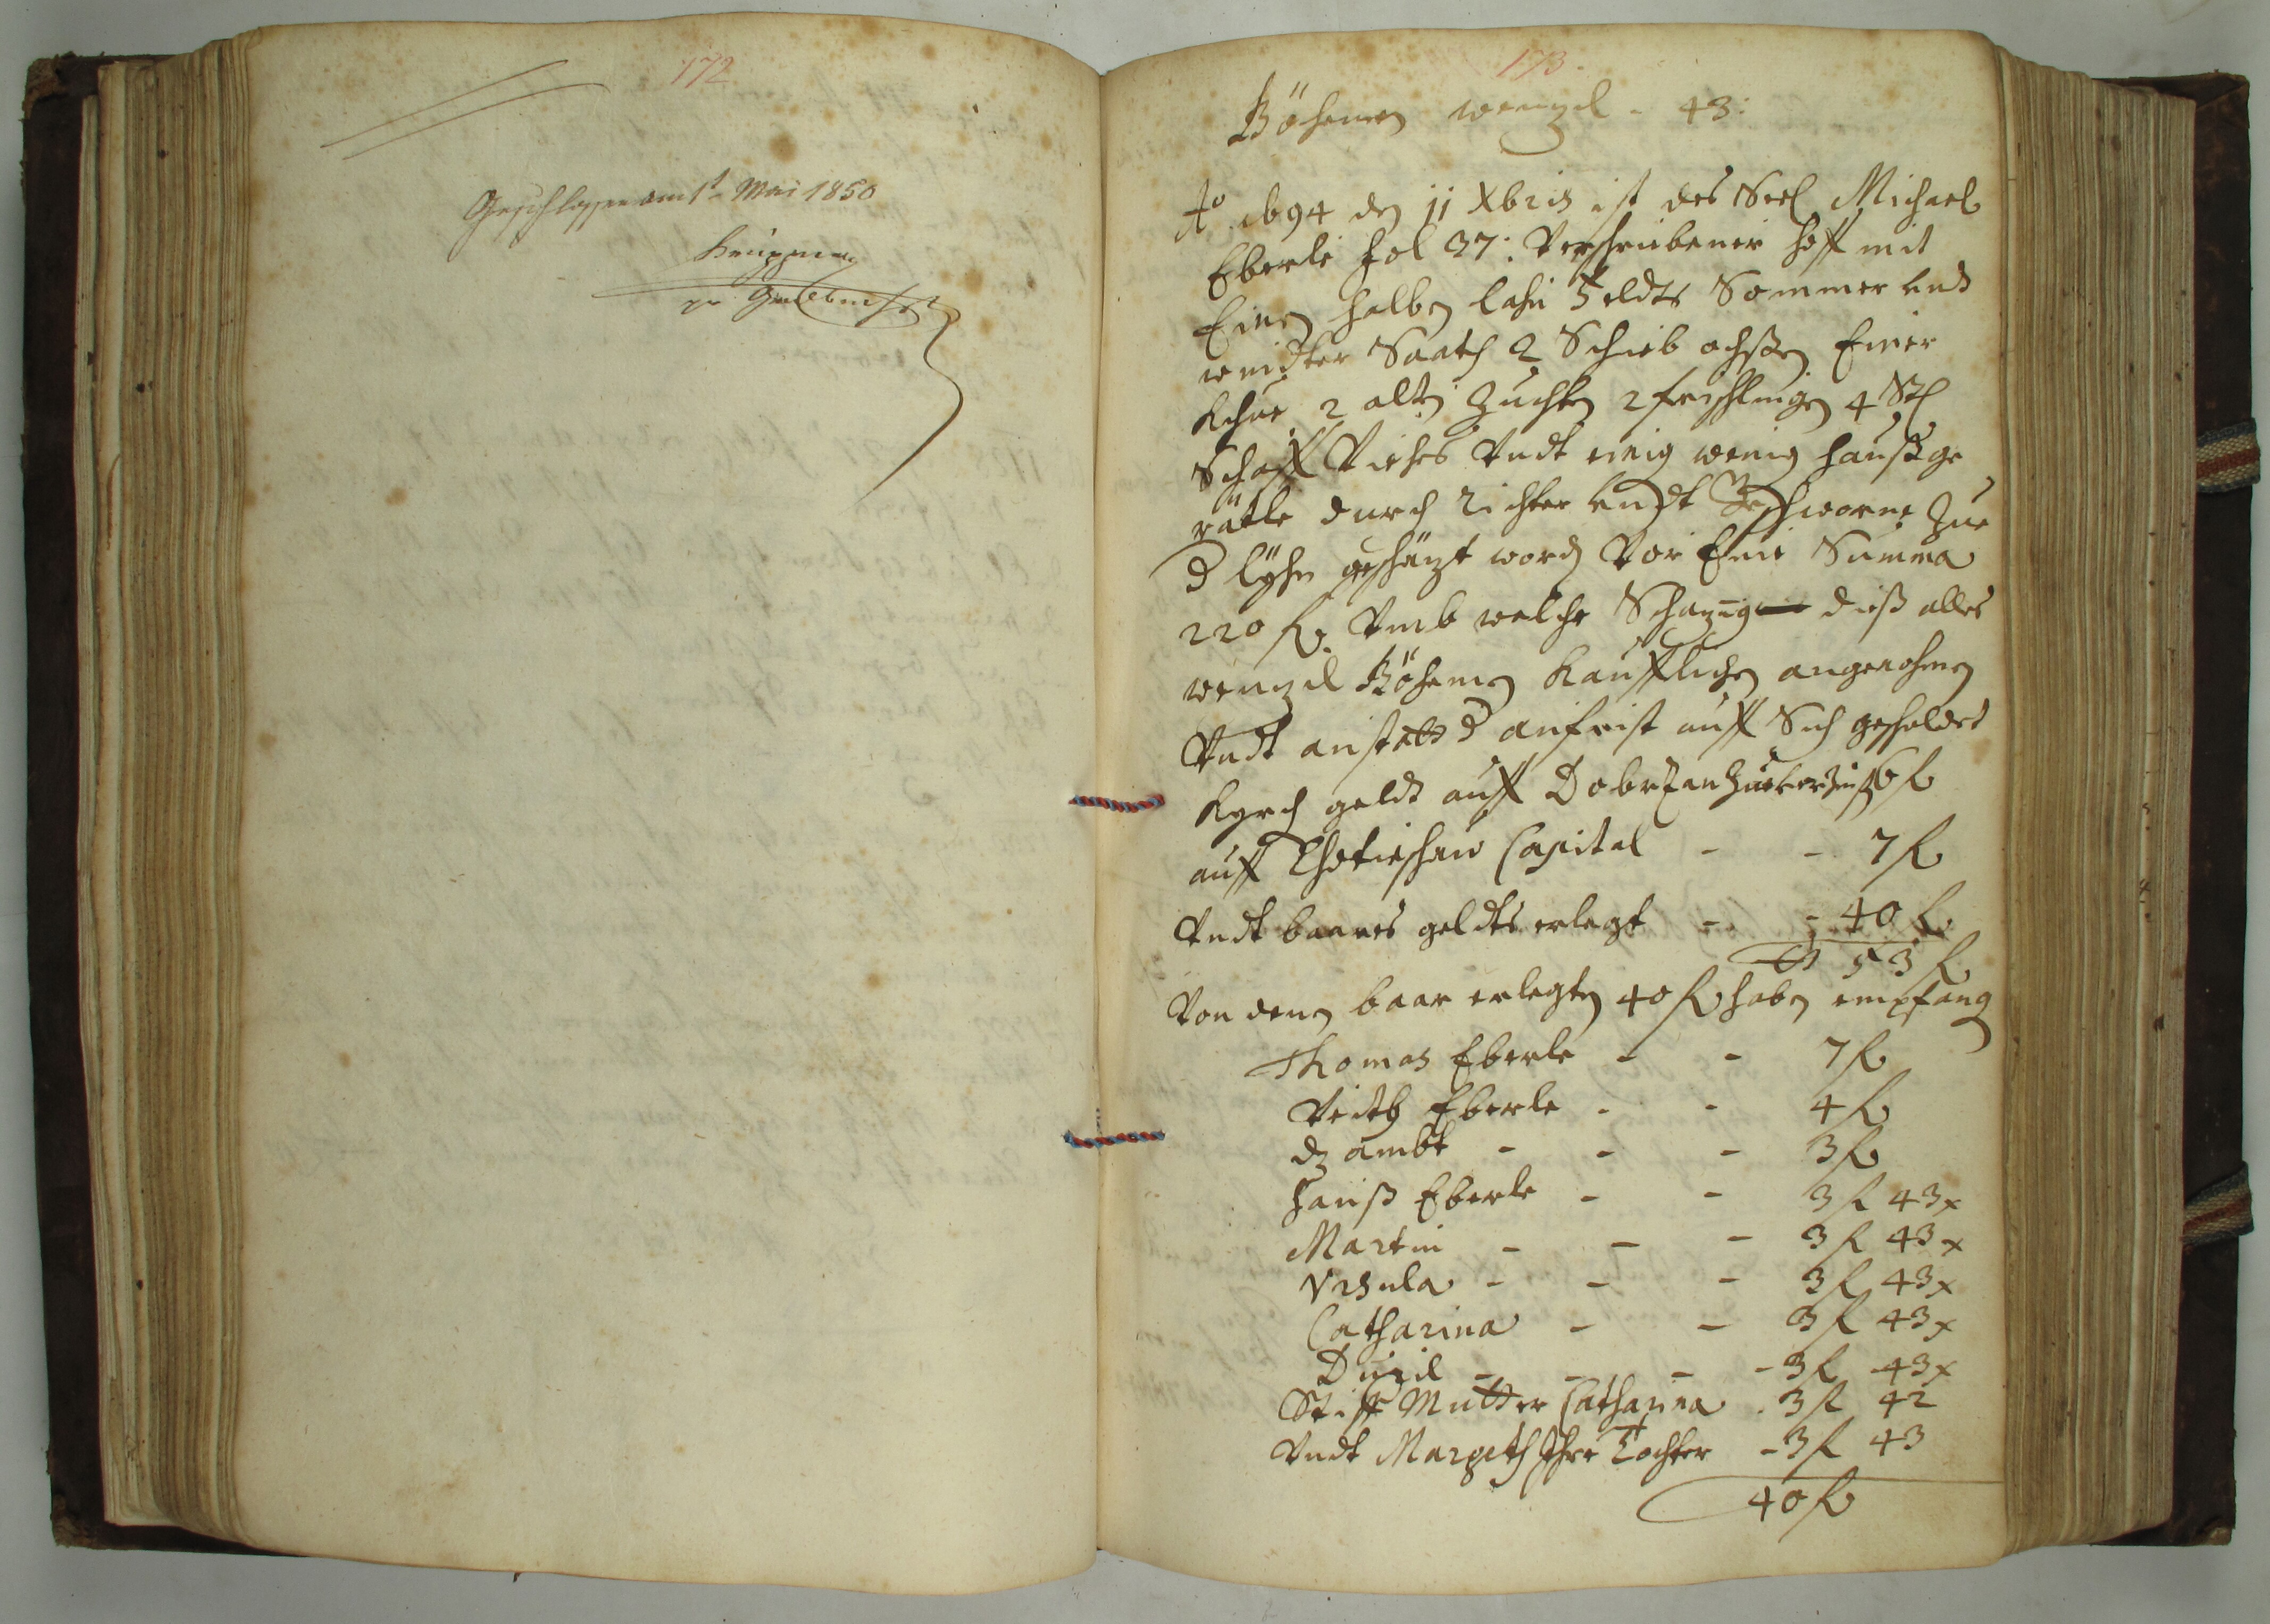 172
Geschlossen am 1t Mai 1850
173.
Böhemen wenzel - 43:
Ao 1694 den 11 Xbris ist des Seel Michael
Eberle fol 37: Verschriebener hoff mit
Einen halben lahn Feldts Sommer undt
windter Saath 2 Schieb ochsen Einer
Khue 2 alten Zuchten 2 frischlingen 4 Stl
Schaff Viehes Vndt einig wenig haußge
rätle durch Richter vndt Geschworne Zue
d geschäzt word Vor Eine Summa
220 fl. Vmb welche Schazug dieß alles
wenzel Böhemen Kaufflichen angenohmen
Vndt anstatt d anfrist auff Sich
Kyrch geldt auff Dobrzan 6 fl
auff Chotieschau Capital - - 7 fl
Vndt baares geldts erlegt - - 40 fl.
53 fl
Von denen baar erlegten 40 fl haben empfang
Thomas Eberle - - 7 fl
Veith Eberle - - 4 fl
dz ambt - - - 3 fl
Hanß Eberle - - 3 fl 43 x
Martin - - - 3 fl 43 x
Vrsula - - - 3 fl 43 x
Catharina - - 3 fl 43 x
- - - 3 fl 43 x
Stiff Mutter Catharina . 3 fl 42
Vndt Margeth Ihre Tochter - 3 fl 43
40 fl